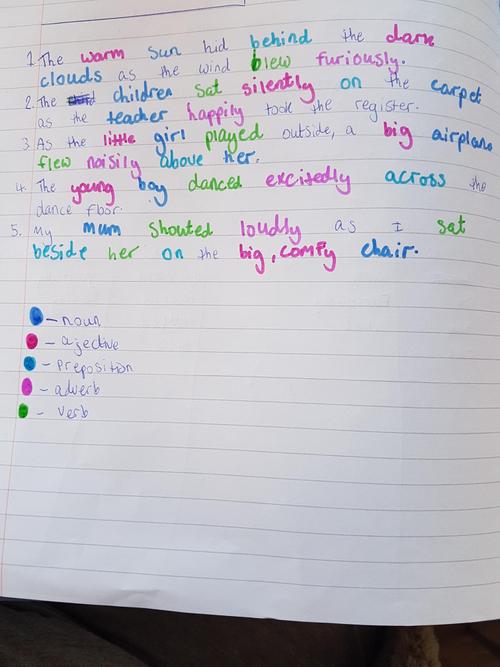 1. The warm sun hid behind the dark
clouds as the wind blew furiously.
2. The children sat silently on the carpet
as the teacher happily took the register.
3. As the little girl played outside, a big airplane
flew noisily above her.
4. The young boy danced excitedly across the
dance floor.
5. My mum shouted loudly as I sat
beside her on the big, comfy chair.
- noun
- ajective
- preposition
- adverb
- verb